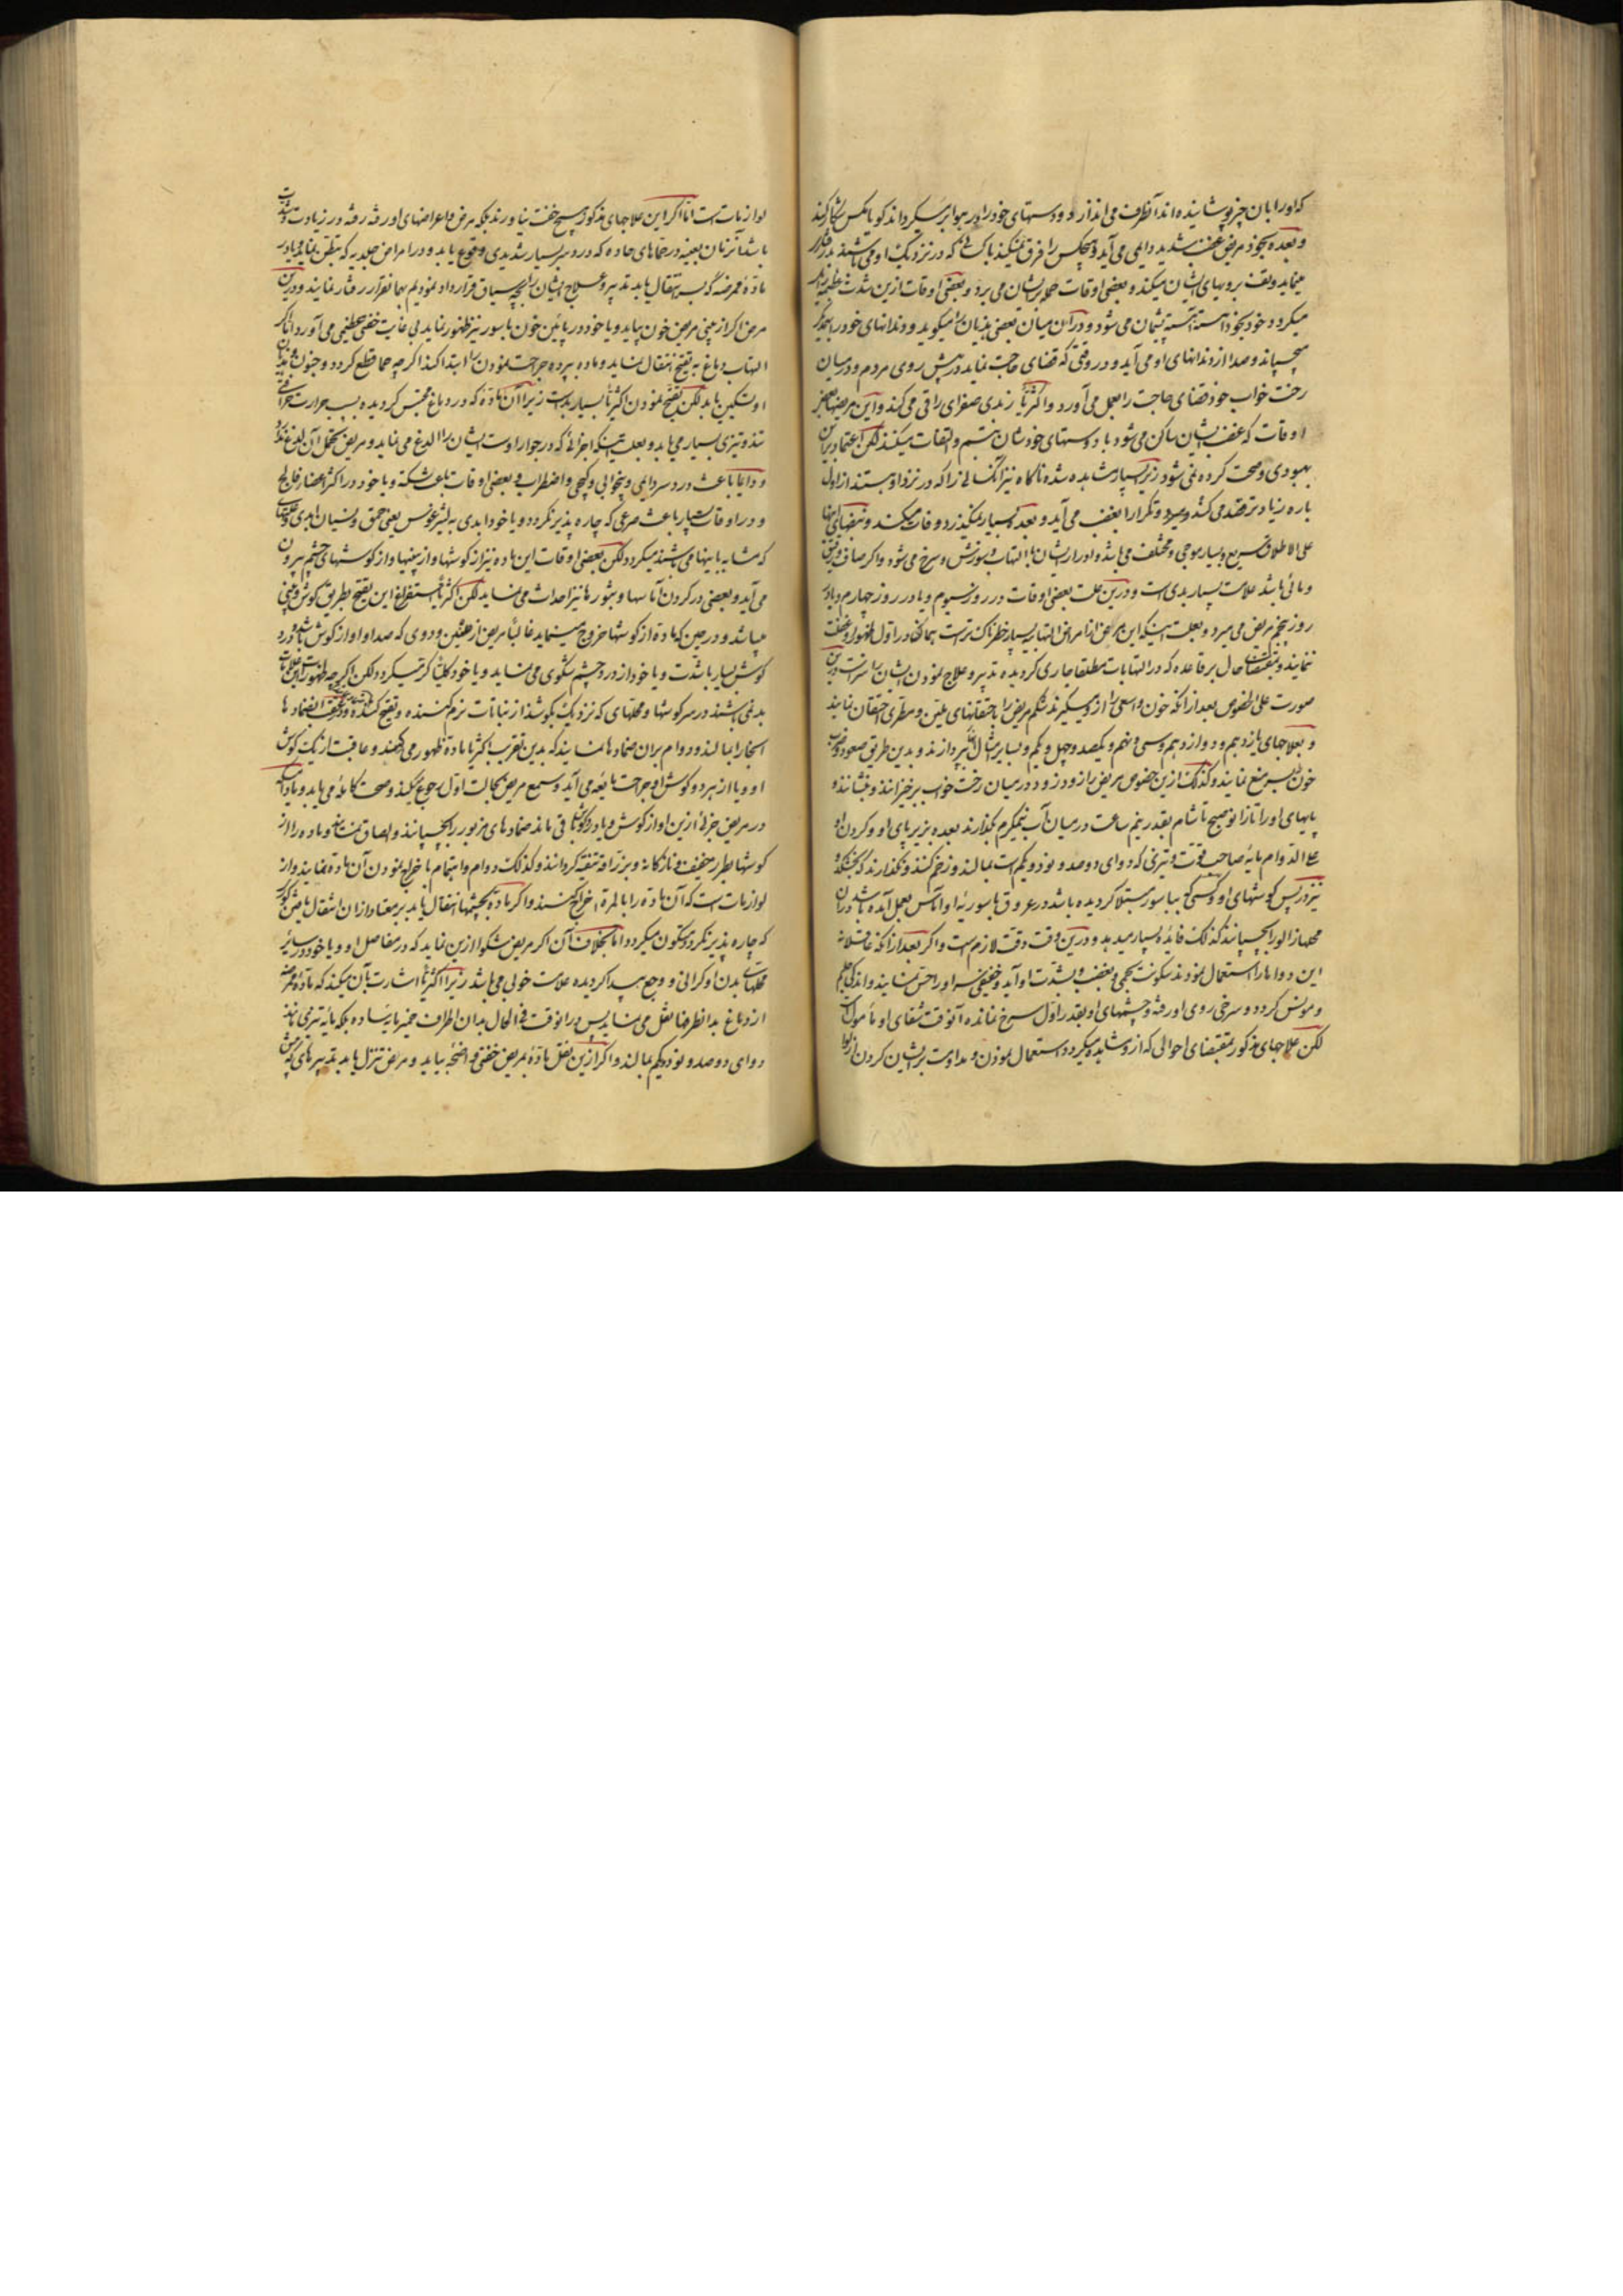 که اورا بان چیز پوشانیده اند آنطرف می اندازد و دستهای خود را در هوا بر میگرداند گویا مکس شکار کند
و بعده بخود مریض غضب شدید دایمی می آید و هیچکس را فرق نمیکند با کسانی که در نزدیک او می باشند بد رفتار
مینماید و تف بروبهای ایشان میکند و بعضی اوقات حمله بر ایشان می برد و بعضی اوقات ازین شدت
میگردد خود بخود آهسته آهسته پشیمان می شود و در آن میان بعضی هذیان را میگوید و دندانهای خود را بهمدیگر
میچسپاند و صدا از دندانهای او می آید و در وقتی که قضای حاجت نماید در پیش روی مردم و در میان
رخت خواب خود قضای حاجت را بعمل می آورد و اکثریا زردی صفرای را قی می کند و این مریضها بعض
اوقات که غضب ایشان ساکن می شود با دوستهای خودشان تبسم و التفات میکنند لکن اعتماد برین
بهبودی و صحت کرده نمی شود زیرا بسیار مشاهده شده ناگاه نیز آنکسانی را که در نزد او هستند از اول
باره زیادتر قصد می کند و میرود و تکرارا بغضب می آید و بعده بسیار نمیگذرد وفات میکند و نبضهای اینها
علی الاطلاق سریع و بسیار موجی و مختلف می باشد و ادرار ایشان با التهاب و سوزش و سرخ می شود و اگر صاف و رقیق
و مائی باشد علامت بسیار بدی است و درین علت بعضی اوقات در روز سیوم و یا در روز چهارم و یا در
روز پنجم مریض می میرد و بعلت اینکه این مرض از امراض التهابیه بسیار خطرناک تر است همانگاه در اول ظهور غفلت
ننمایند و بمقتضای حال بر قاعده که در التهابات مطلقا جاری گردیده تدبیر و علاج نمودن ایشان را سزاست درین
صورت علی الخصوص بعد از آنکه خون واسعی را ازو میگیرند شکم مریض را باحتقانهای ملین و مطری احتقان نمایند
و بعلاجهای یازدهم و دوازدهم و سی و نهم و یکصد و چهل و یکم و بسایر امثال آنها بپردازند و بدین طریق صعود و صب
خون بسر منع نمایند و کذلک ازین خصوص مریض را زود زود در میان رخت خواب برخیزانند و بنشانند و
پایهای او را تا زانو صبح تا شام بقدر نیم ساعت در میان آب نیمگرم بگذارند بعده بزیر پای او و گردن او
علی الدوام مایه صاحب قوت و تیزی که دوای دوصد و نود و یکم است بمالند و زخم کنند و نگذارند که بخشکد و
نیز در پس گوشهای او و کسی که بباسور مبتلا گردیده باشد در عروق باسوریه او اماس بعمل آمده باشد در آن
محلها زالو را بچسپانند کذلک فایده بسیار میدهد و درین وقت دقت لازم است و اگر بعد از آنکه
این دواها را استعمال نمودند سکونت بحمی و بغضب و بشدت او آید و خفیفی سر او را حس نمایند و اندکی ملایم
و مونس گردد و سرخی روی او رفته و چشمهای او بقدر اول سرخ نمانده آنوقت شفای او مأمول است
لکن علاجهای مذکور بمقتضای احوالی که ازو مشاهده میگردد استعمال نمودن و مداومت بر ایشان کردن از
لوازمات است اما اگر این علاجهای مذکور هیچ خفت نیاورند بلکه مرض و اعراضهای او رفته رفته در زیادت و شدت
باشد آنزمان بعینه در حماهای حاده که درد سر بسیار شدیدی وقوع یابد و در امراض جلدیه که
مادّه ممرضه که بسر انتقال یابد تدبیر و علاج ایشان را بچه سیاق قرارداد نمودیم بهمانقرار رفتار نمایند و درین
مرض اگر از بینی مریض خون بیاید و یا خود در پائین خون باسور نیز ظهور نماید بی غایت خفتی عظیمی می آورد اما اگر
التهاب دماغ به تقیح انتقال نماید و ماده بپرده جراحت نمودن را ابتدا کند اگرچه حما قطع گردد و جنون و هذیان
او تسکین یابد لکن تقیح نمودن اکثریا بسیار بد است زیرا آن مادّه که در دماغ محتبس گردیده بسبب حرارت
تند و تیزی بسیار می یابد و بعلت اینکه اجزائی که در جوار اوست ایشان را لدغ می نماید و مریض تحمل آن لدغ
و دایما باعث درد سر دایمی و بیخوابی و کیجی و اضطراب و بعضی اوقات باعث سکته و یا خود در اکثر اعضا فالج
و در اوقات بسیار باعث صرعی که چاره پذیر نگردد و یا خود ابدی به لیثرغوس یعنی حمق و نسیان ابدی
که مشابه باینها می باشند میگردد لکن بعضی اوقات این ماده نیز از گوشها و از بینیها و از گوشهای چشم بیرون
می آید و بعضی در گردن آماسها و بثورها نیز احداث می نماید لکن اکثریا استفراغ این تقیح بطریق گوش و بینی
میباشد و در حین که مادّه از گوشها خروج مینماید غالبا مریض از طنین و دوی که صدا و آواز گوش باشد و درد
گوش بسیار با شدت و یا خود از درد چشم شکوی می نماید و یا خود کلیتا کر نمیگردد لکن اگرچه
بد نمی باشند در سر گوشها و محلهای که نزدیک بگوشند از نباتات نرم کننده و تقیح کننده
اسخار بمالند و دوام بران ضمادها نمایند که بدین تقریب اکثریا مادّه ظهور می کند و عاقبت از یک گوش
او و یا از هر دو گوش او جراحت مایعه می آید و سمع مریض بحالت اول رجوع میکند و صحت کامله می یابد و مادام که
در مریض جزئی ازین آواز گوش و یا درد گوشها باقی ماند ضمادهای مزبور را بچسپانند و الصاق نمایند و ماده را از
گوشها بطرز خفیف و نازکانه و بزراقه تنقیه گردانند و کذلک دوام و اهتمام باخراج نمودن آن ماده نمایند و از
لوازمات است که آن مادّه را بالمرّه اخراج کنند و اگر مادّه بچشمها انتقال یابد بر معتاد از ان انتقال
که چاره پذیر نگردد متکون میگردد اما بخلاف آن اگر مریض شکوا ازین نماید که در مفاصل او و یا خود در سایر
محلهای بدن او گرانی و وجع پیدا گردیده علامت خوبی می باشد زیرا اکثریا اشارت بآن میکند که مادّه ممرضه
از دماغ بدانطرفها نقل می نماید پس در آنوقت فی الحال بدان اطراف خمیر مایه ساده بلکه مایه تیزی مانند
دوای دوصد و نود و یکم بمالند و اگر ازین نقل مادّه بمریض خفتی واضحی بیاید و مرض تنزل یابد تدبیرهای